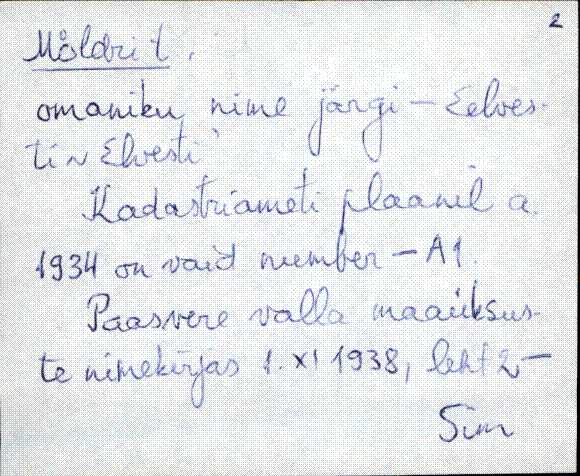 2
Möldri t.
omaniku nime järgi – Eelves-
ti ~ Elvesti
Kadastriameti plaanil a.
1934 on vaid number – A1.
Paasvere valla maaüksus-
te nimekirjas 1. XI 1938, leht 2 –
Sim